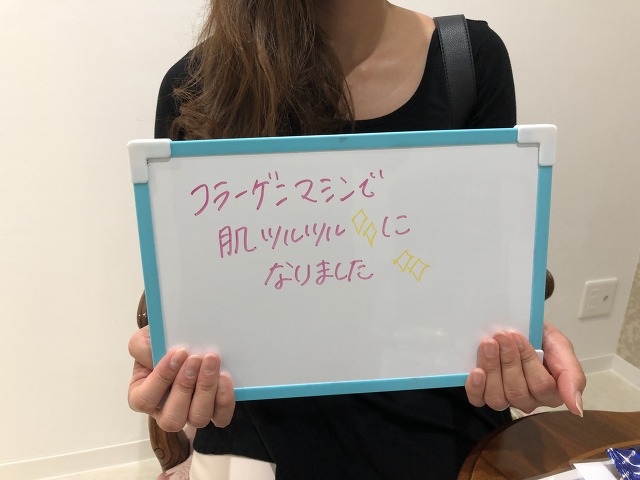 コラーゲンマシンで
肌ツルツルに
なりました